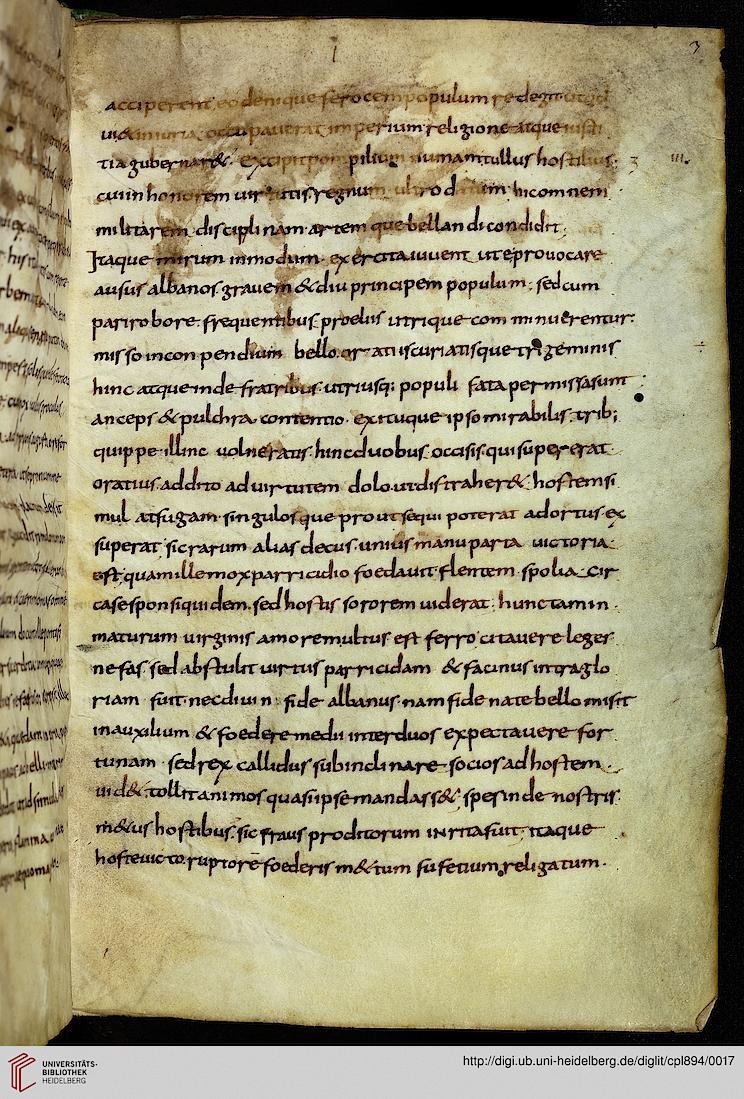 3
acciperent eo denique ferocem populum redegit ut quod
ui & iniuria occupauerat imperium religione atque iusti
tia gubernar&. excipit pompilium numam tullus hostilius. 3 III.
cui in honorem uirtutis. regnum ultro datum. hic omnem
militarem disciplinam. artem que bellandi condidit.
Itaque mirum inmodum. exercita iuuent. ut e prouocare
ausus albanos. grauem & diu principem populum. sed cum
pari robore. frequentibus proeliis utrique com minuerentur.
misso incon pendium bello. oratiis curiatiisque trigeminis
hinc atque inde fratribus. utriusq; populi fata permissa sunt
anceps & pulchra contentio. exituque ipso mirabilis. trib;
quippe illinc uolneratis. hinc duobus occisis. qui supererat
oratius. addito ad uirtutem dolo. ut distraher& hostem si
mul atfugam. singulosque prout sequi poterat adortus ex
superat. sic rarum alias decus. unius manu parta uictoria.
est. quam ille mox parricidio foedauit. flentem spolia cir
ca se sponsi quidem. sed hostis sororem uiderat. hunc tam in
maturum uirginis amorem ultus est ferro. citauere leges
nefas. sed abstulit uirtus parricidam & facinus intra glo
riam fuit. nec diu in fide albanus. nam fidenate bello missi
in auxilium & foedere medii inter duos expectauere for
tunam. sed rex callidus subi inclinare socios ad hostem.
uid& tollit animos quasi ipse mandass& spes inde nostris
m&us hostibus. sic fraus proditorum inrita fuit. itaque
hoste uicto. ruptorē foederis m&tum fufetium. religatum.
UNIVERSITÄTS-
BIBLIOTHEK
HEIDELBERG
http://digi.ub.uni-heidelberg.de/diglit/cpl894/0017